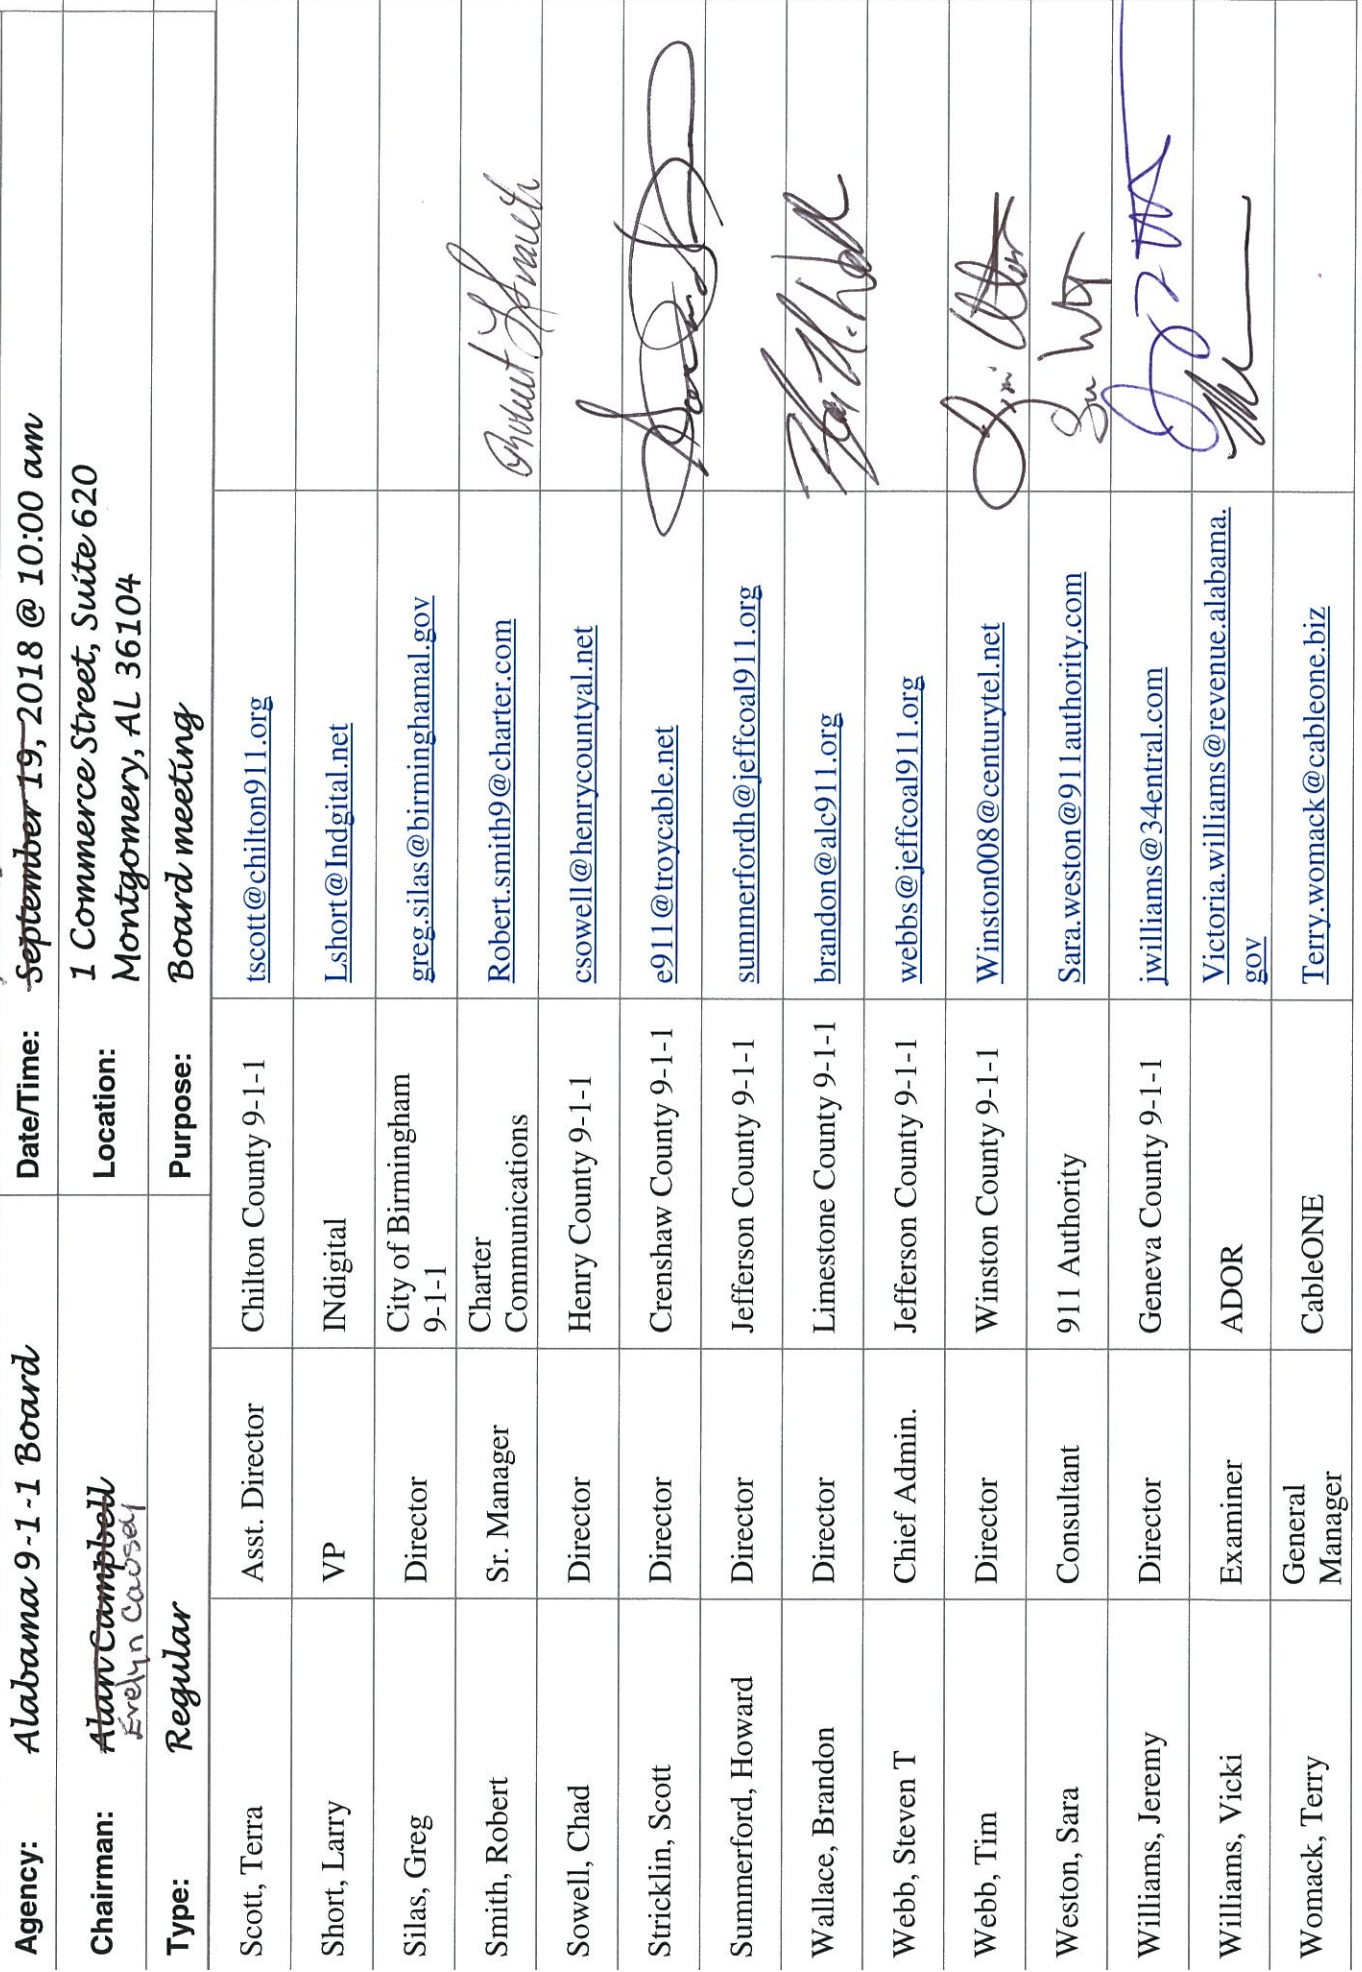 Agency: Alabama 9-1-1 Board Date/Time: September 19, 2018 @ 10:00 am
Chairman: Alan Campbell Location: 1 Commerce Street, Suite 620
Evelyn Causey Montgomery, AL 36104
Type: Regular Purpose: Board meeting
Scott, Terra Asst. Director Chilton County 9-1-1 tscott@chilton911.org
Short, Larry VP INdigital Lshort@Indgital.net
Silas, Greg Director City of Birmingham greg.silas@birminghamal.gov
9-1-1
Smith, Robert Sr. Manager Charter Robert.smith9@charter.com
Communications
Sowell, Chad Director Henry County 9-1-1 csowell@henrycountyal.net
Stricklin, Scott Director Crenshaw County 9-1-1 e911@troycable.net
Summerford, Howard Director Jefferson County 9-1-1 summerfordh@jeffcoal911.org
Wallace, Brandon Director Limestone County 9-1-1 brandon@alc911.org
Webb, Steven T Chief Admin. Jefferson County 9-1-1 webbs@jeffcoal911.org
Webb, Tim Director Winston County 9-1-1 Winston008@centurytel.net
Weston, Sara Consultant 911 Authority Sara.weston@911authority.com
Williams, Jeremy Director Geneva County 9-1-1 jwilliams@34entral.com
Williams, Vicki Examiner ADOR Victoria.williams@revenue.alabama.
gov
Womack, Terry General CableONE Terry.womack@cableone.biz
Manager